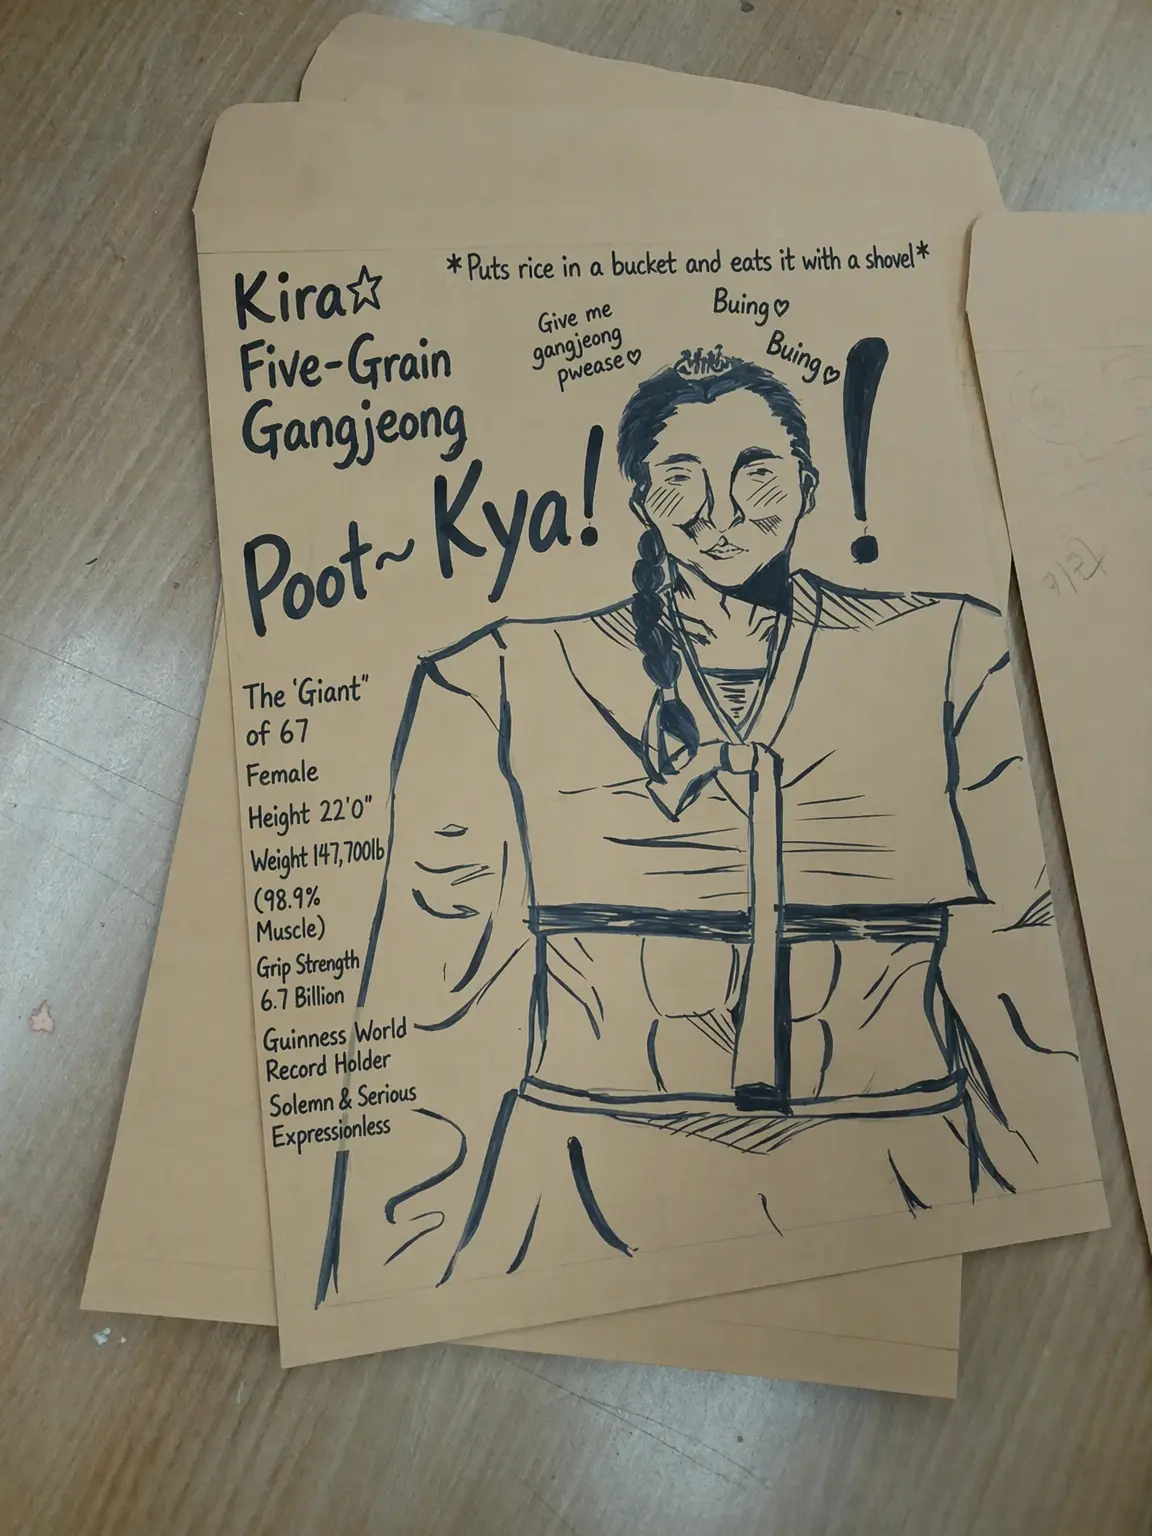 Kira☆
Five-Grain
Gangjeong
Poot~ Kya!
*Puts rice in a bucket and eats it with a shovel*
Give me
gangjeong
pwease♡
Buing♡
Buing♡
!
The 'Giant"
of 67
Female
Height 22'0"
Weight 147,700lb
(98.9%
Muscle)
Grip Strength
6.7 Billion
Guinness World
Record Holder
Solemn & Serious
Expressionless